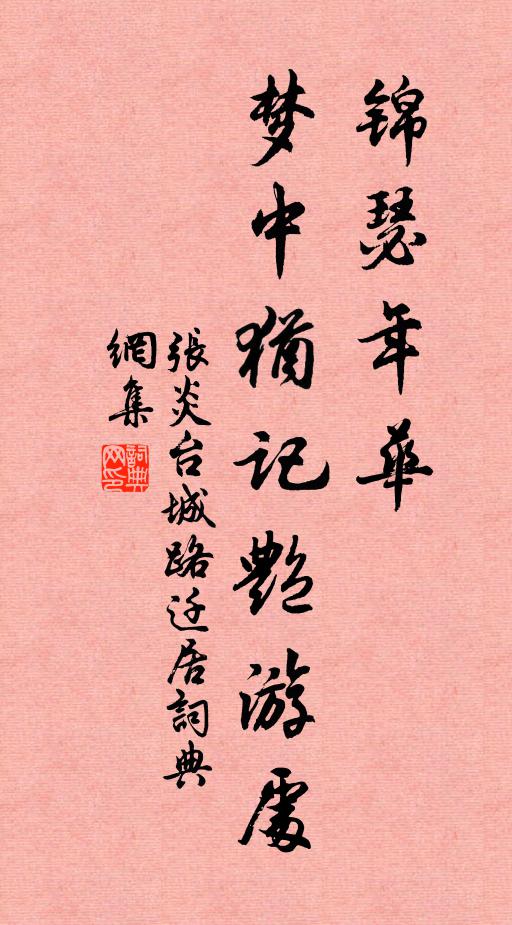 锦瑟年华
梦中猶记艷游處
張炎台城路迁居詞典
網集
詞典
网印